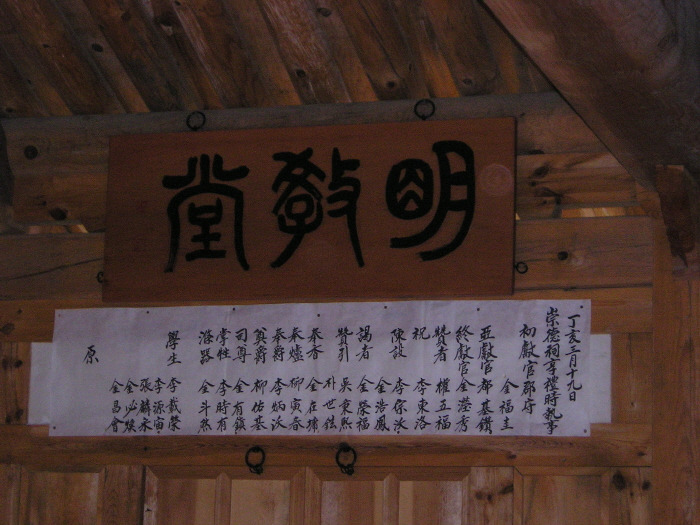 明敎堂
丁亥三月十九日
崇德祠享禮時執事
初獻官 郡守 金福圭
亞獻官 都基鑽
終獻官 金瀅秀
贊者 權五福
祝 李東洛
陳設 李保沃
金浩鳳
謁者 金榮福
贊引 吳秉熙
朴世鉉
奉香 金在
奉爐 柳寅春
奉爵 李炳沃
奠爵 柳佑基
司尊 金有鎭
掌牲 李時有
滌器 金斗煥
學生 李載榮
李源寅
張麟永
金必煥
金昌會
原